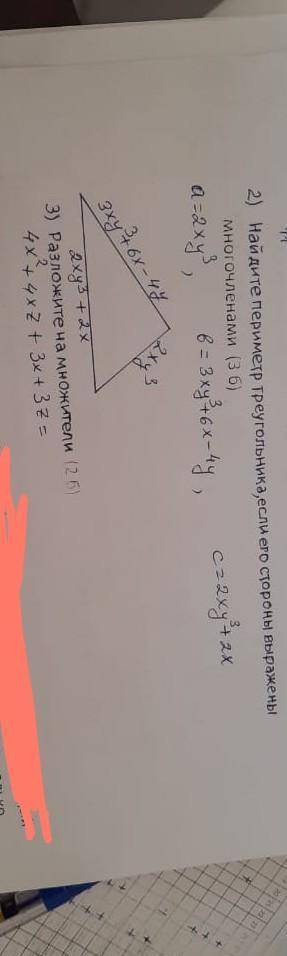 2) Найдите периметр треугольника, если его стороны выражены
многочленами (3 б)
a = 2xy³, в = 3xy³ + 6x - 4y, c = 2xy³ + 2x
3xy³ + 6x - 4y
2xy³
2xy³ + 2x
3) Разложите на множители (2 б)
4x² + 4xz + 3x + 3z =